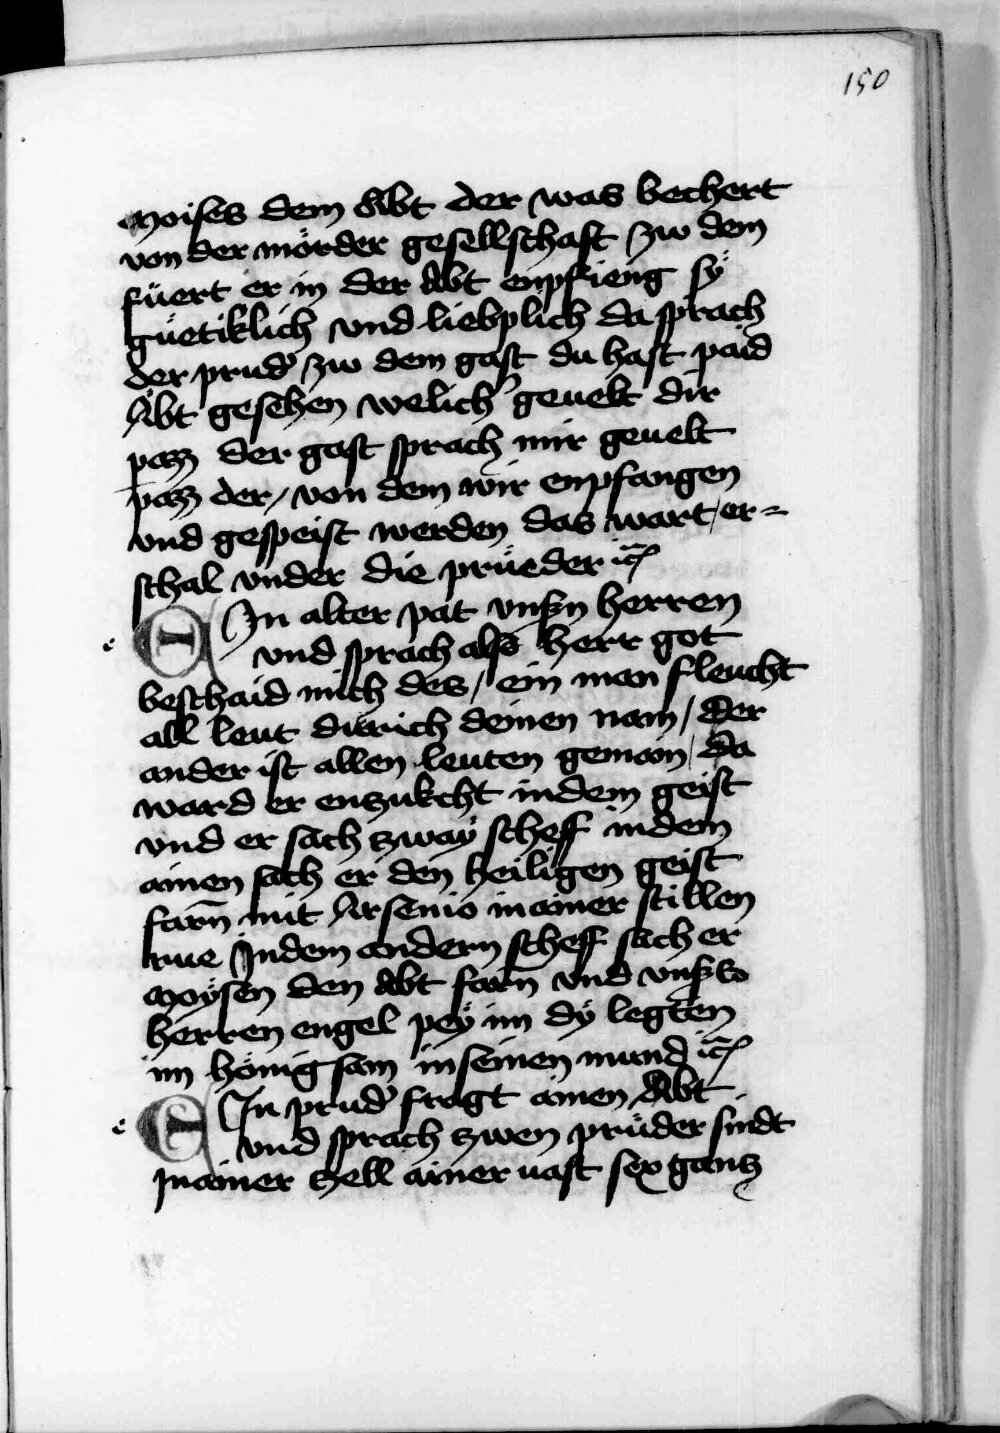 150
Moises dem Abt der was bechert
von der mörder gesellschaft zw dem
füert er in der Abt enpfieng sÿ
güetiklich vnd lieblplich da sprach
der prud' zw dem gast du hast paid
Abt gesehen welich' geuelt dir
pazz der gast sprach mir geuelt
pazz der / von dem wir enpfangen
vnd gespeist werden das wart / er=
schal vnder die prüeder ꝛc̃
e EIn alter pat vnsñ herren
vnd sprach also herr got
beschaid mich des / ein man fleucht
all leut durich deinen nam / der
ander ist allen leuten gemain / da
ward er enzukcht in dem geist
vnd er sach zway scheff in dem
ainen sach er den heiligen geist
farñ mit Arsenio in ainer stillen
rue In dem andern scheff sach er
Moÿsen den Abt farñ vnd vnsers
herren engel peÿ im dÿ legten
im hönigsam in seinen mund ꝛc̃
e EIn prud' fragt ainen Abt
vnd sprach zwen prüder sindt
in ainer zell ainer uast sex gantz